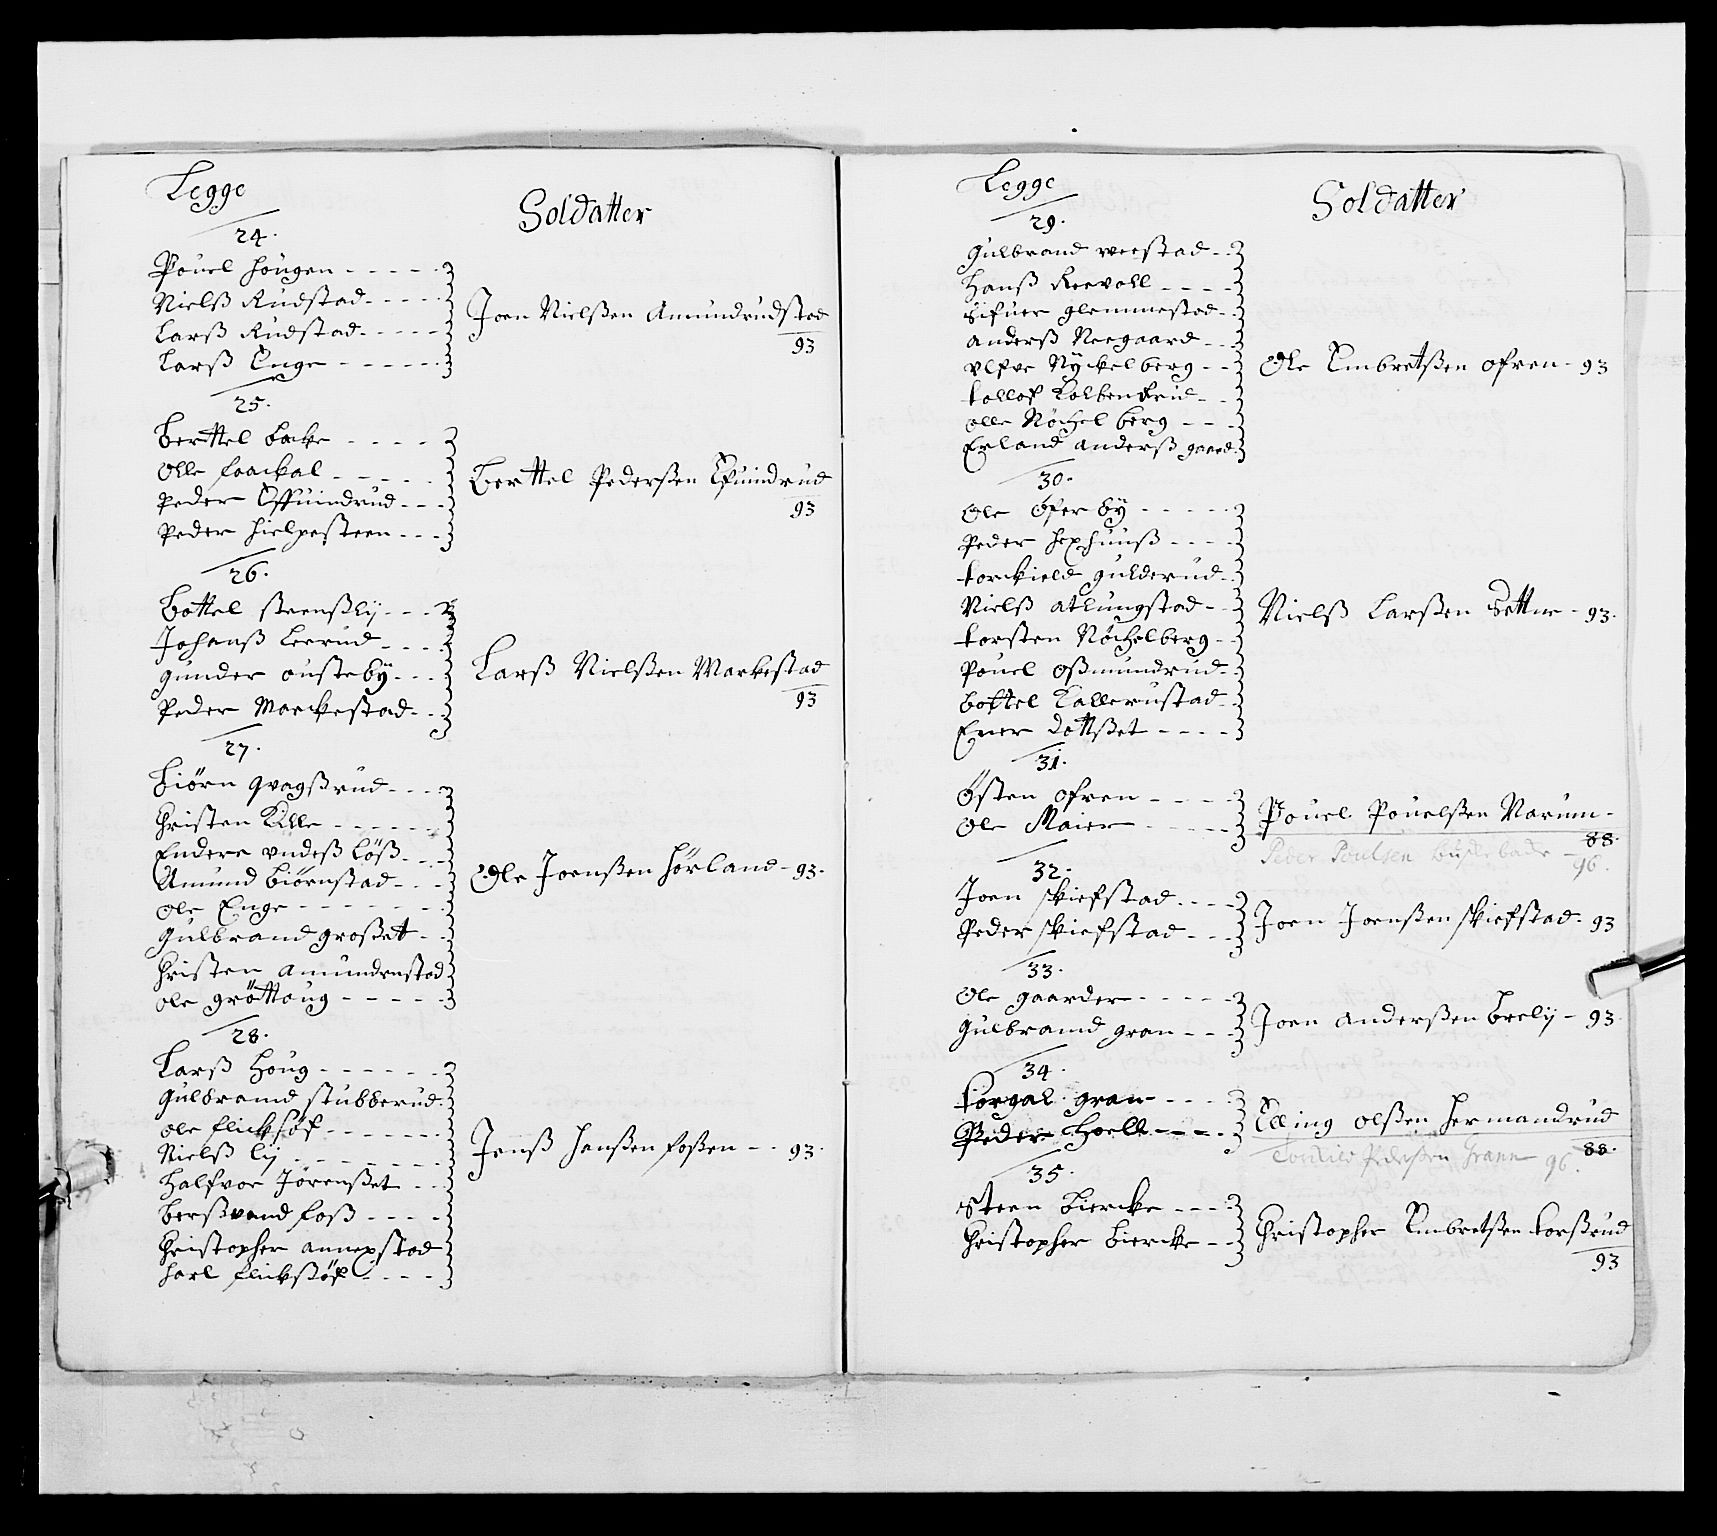 Legge
Soldatter
24.
Pouel Hougen
Nielß Rudstad
Larß Rudstad
Larß Enge
Joen Nielßen Amundrudstad
93
25.
Berttel Backe
Olle Faackal
Peder Effuindrud
Peder Hielpesteen
Berttel Pederßen Efuindrud
93
26.
Bottel Steenßlij
Johanß Leerud
Gunder Ousteby
Peder Marckestad
Larß Nielßen Markestad
93
27.
Biörn Qvagßrud
Christen Kille
Endere Undeß Löß
Amund Biörnstad
Ole Enge
Gulbrand Großet
Christen Amundrustad
Ole Gröttoug
Ole Joenßen Hörland - 93.
28.
Larß Houg
Gulbrand Stubberud
Ole Flickßöf
Nielß Lij
Halfvor Jörenßet
Berßvend Foß
Christopher Annexstad
Carl Flickßöf
Jenß Hanßen Foßen - 93.
Legge
Soldatter
29.
Gulbrand Veestad
Hanß Reevoll
Sifuer Glemmestad
Anderß Neegaard
Ulfve Nyckelberg
Tollof Kolbenrud
Olle Nöchelberg
Erland Anderß gaard
Ole Embretßen Ofren - 93
30.
Ole Öfer by
Peder Hexhuuß
Torckield Gulderud
Nielß Atlungstad
Torsten Nöchelberg
Pouel Oßmundrud
Bottel Kallerustad
Ener Dottßet
Nielß Larßen Settne - 93.
31.
Östen Ofren
Ole Maier
Pouel Pouelßen Narum -
88.
Peder Poulsen Bystebacke
96.
32.
Joen Skiefstad
Peder Skiefstad
Joen Joenßen Skiefstad - 93
33.
Ole Gaarder
Gulbrand Gran
Joen Anderßen Brelij - 93
34.
Torgal Gran
Peder Hoell
Elling Olßen Hermandrud
88.
Torkild Pederßen Grann 96.
35.
Steen Biercke
Christopher Biercke
Christopher Embretßen Torßrud
93